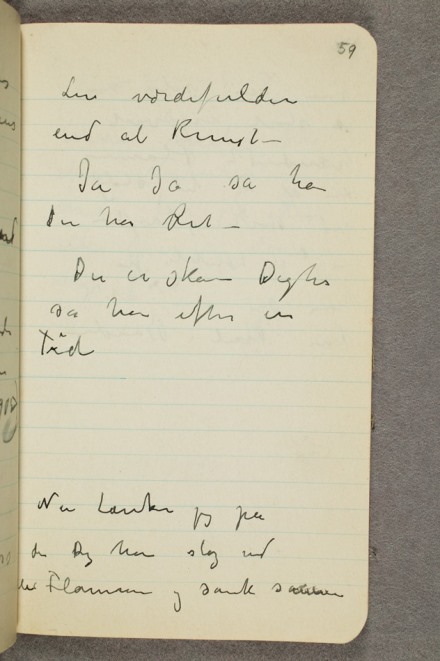 59
værdifulden
end al Kunst –
Ja Ja sa han
Du har Ret –
Du er skam Digter
sa han efter en
Tid
Nu tænker jeg på
da han slog ud
Flammen og sank sammen